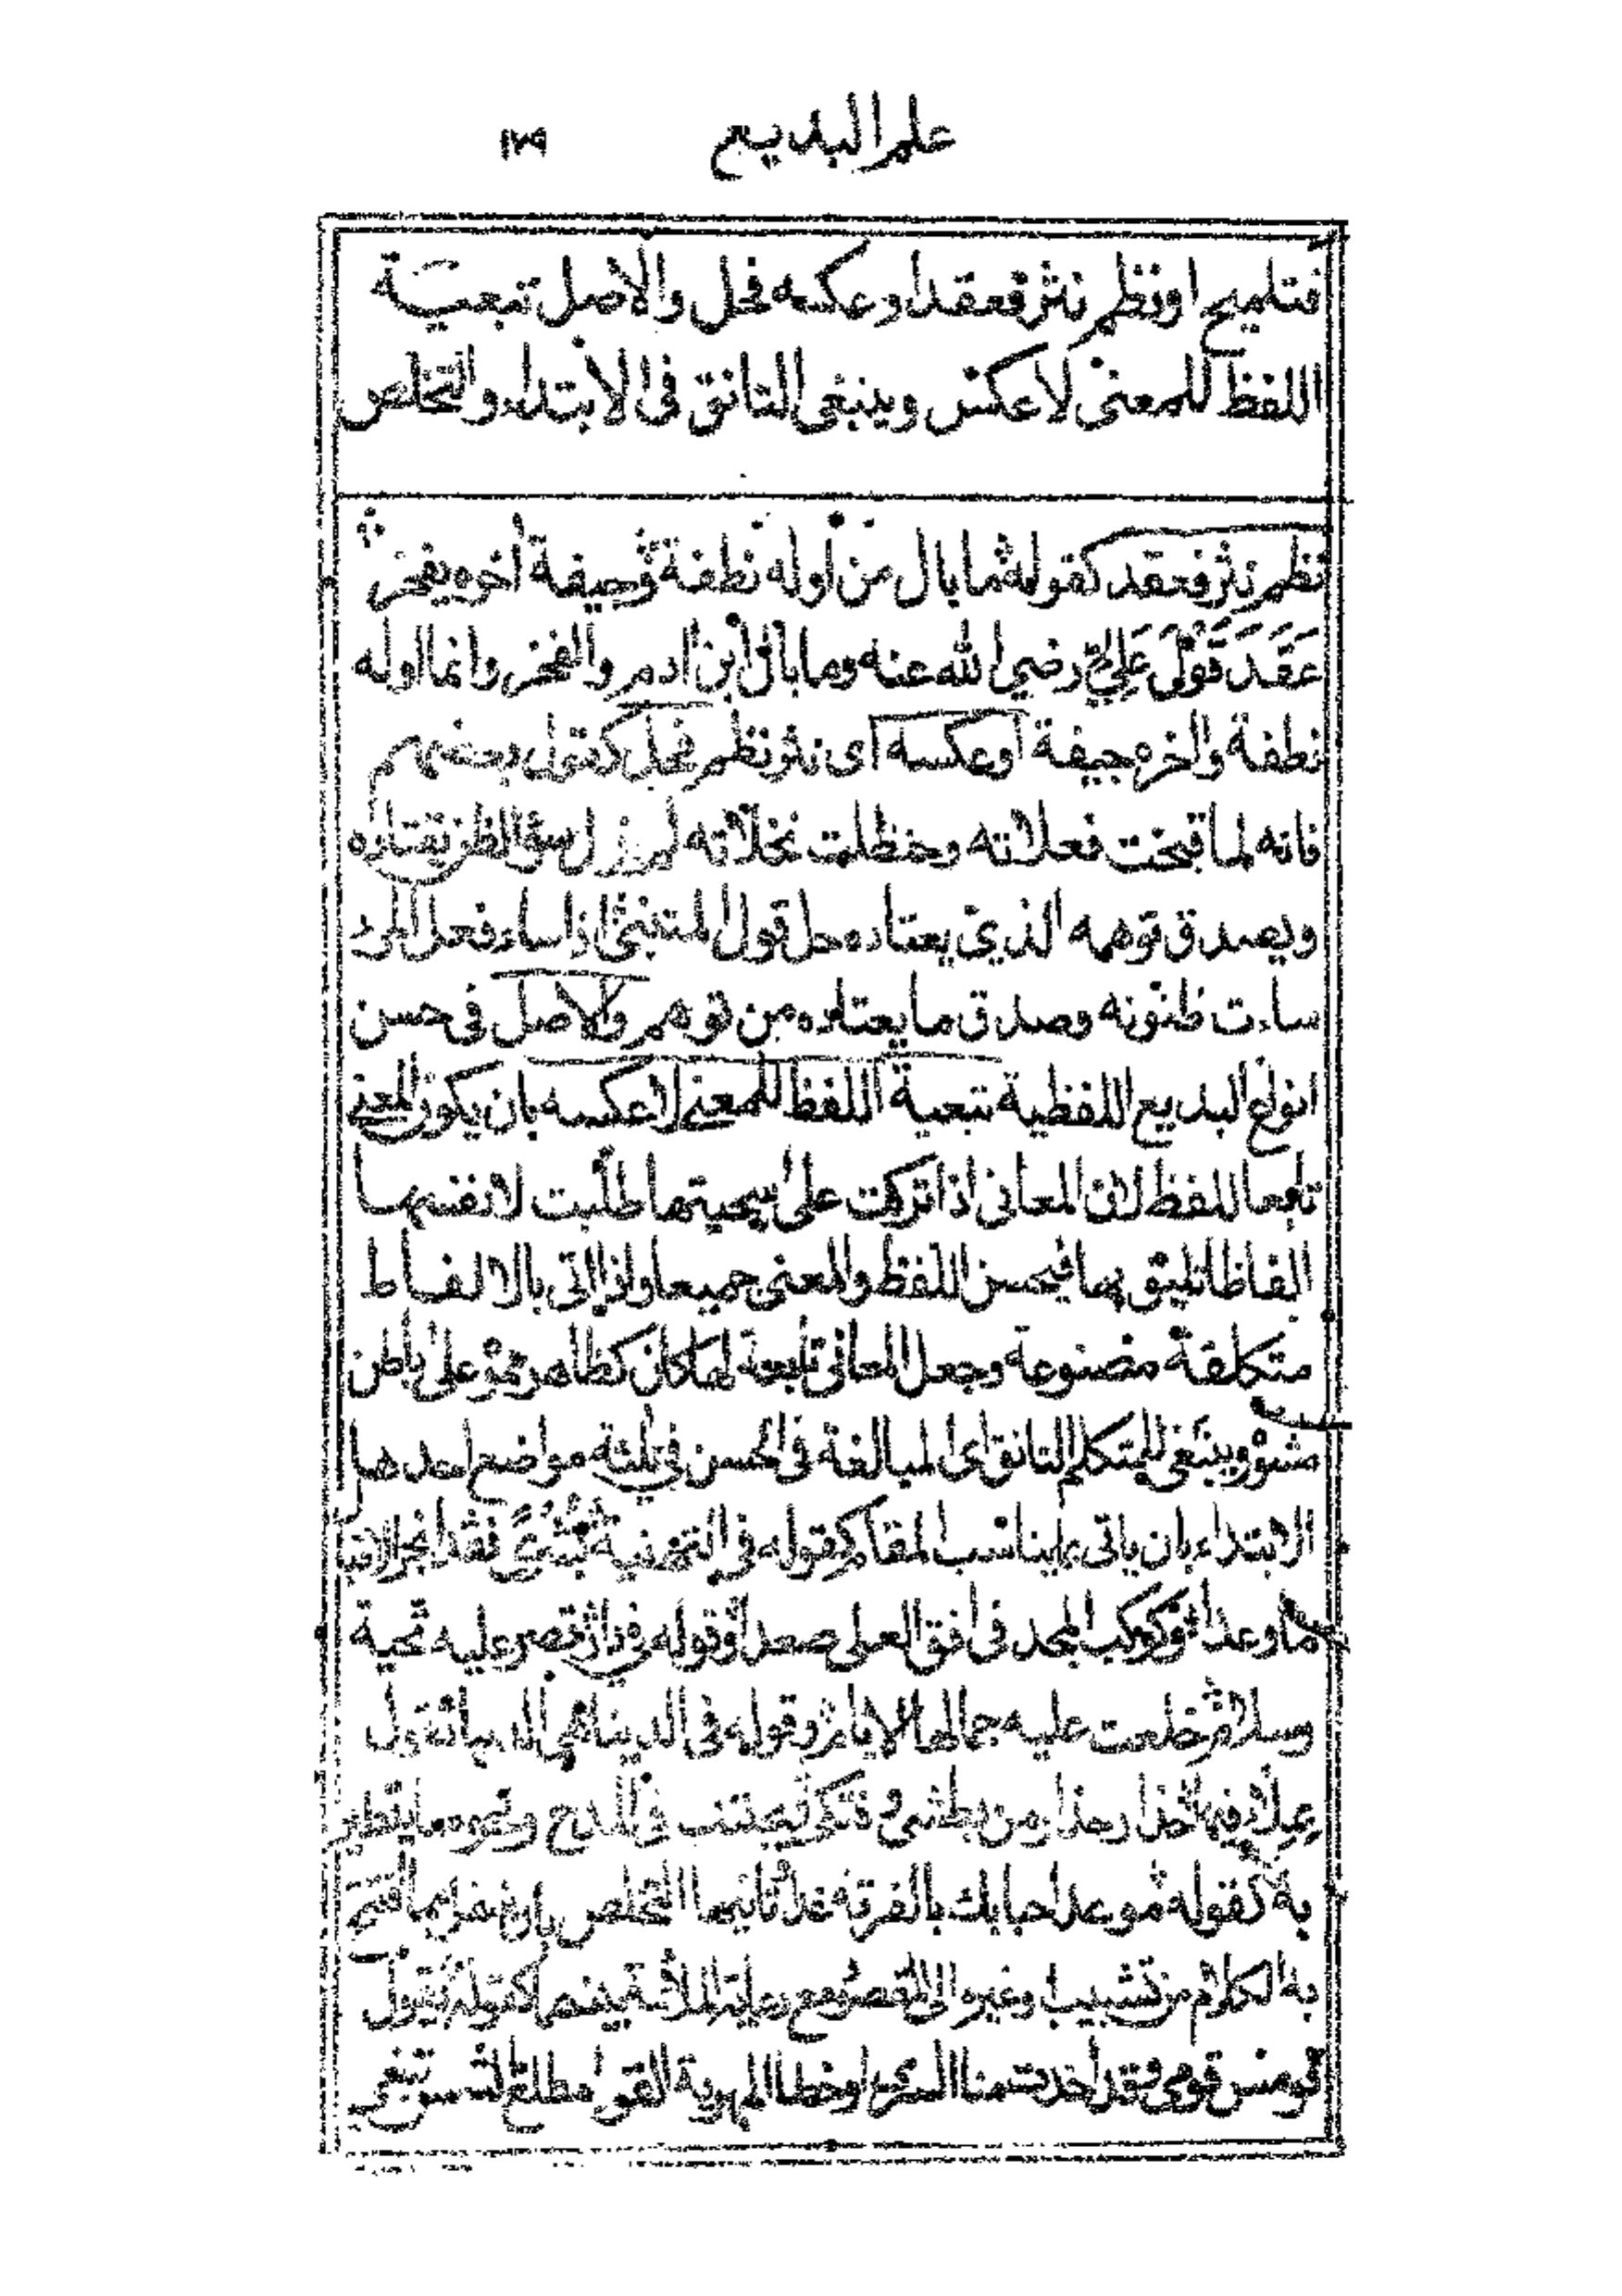 علم البديع ١٧٩
فتلميح او نظم نثر فعقد او عكسه فحل والاصل تبعية
اللفظ للمعنى لا عكس وينبغى التانق فى الابتداء والتخلص
نظم نثر فعقد كقوله ما بال من اوله نطفة وجيفة اخره يفخر
عَقَدَ قَوْلَ عَلِيٍّ رضي الله عنه وما بال ابن ادم والفخر وانما اوله
نطفة واخره جيفة او عكسه اى نثر نظم فحل كقول بعضهم
فانه لما قبحت فعلاته وحنظلت نخلاته لم يزل سؤ الظن يقتاده
ويصدق توهمه الذي يعتاده حل قول المتنبئ اذا ساء فعل المرء
ساءت ظنونه وصدق ما يعتاده من توهم والاصل فى حسن
انواع البديع اللفظية تبعية اللفظ للمعنى لا عكسه بان يكون المعنى
تابعا للفظ لان المعانى اذا تركت على سجيتها طلبت لانفسها
الفاظا تليق بها فيحسن اللفظ والمعنى جميعا واذا اتى بالالفاظ
متكلفة مصنوعة وجعل المعانى تابعة لها كان كظاهر مموه على باطن
مشوه وينبغى للمتكلم التانق اى المبالغة فى الحسن فى ثلثة مواضع احدها
الابتداء بان ياتى بما يناسب المقام كقوله فى التهنية بُشْرَى فقد انجز الاقبال
ما وعدا وكوكب المجد فى افق العلى صعدا وقوله فى دار قصر عليه تحية
وسلام خلعت عليه جمالها الايام وقوله فى الدنيا هى الدنيا تقول
بملاء فيها حذار حذار من بطشى وفتكى فيجتنب فى المدح ونحوه ما يتطير
به كقوله موعد احبابك بالفرقة غد ثانيها التخلص بان مما افتتح
به الكلام من تشبيب وغيره الى المقصود مع رعاية الملائمة بينهما كقوله يقول
فى قومس قومى وقد اخذت منا السرى وخطا المهرية القود امطلع الشمس تبغى